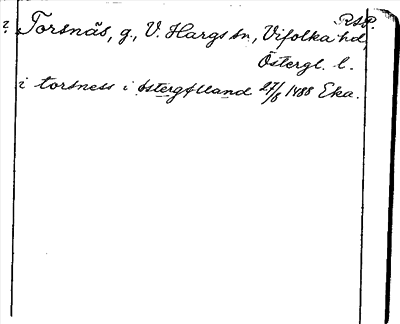 RSP.
? Torsnäs, g., V. Hargs sn, Vifolka hd,
Östergl. l.
i torsness i østergøtland 27/6 1488 Eka.